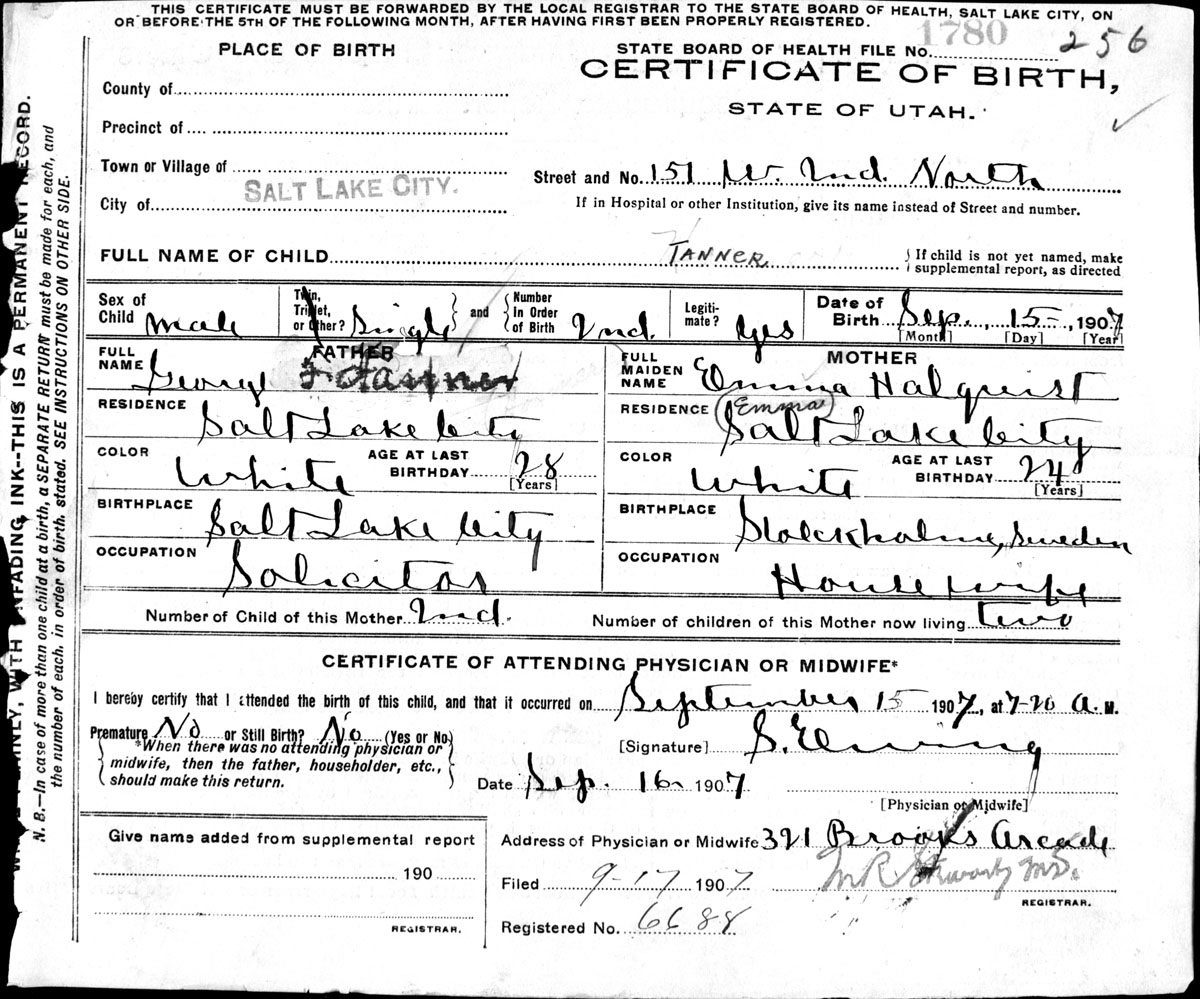 THIS CERTIFICATE MUST BE FORWARDED BY THE LOCAL REGISTRAR TO THE STATE BOARD OF HEALTH, SALT LAKE CITY, ON
OR BEFORE THE 5TH OF THE FOLLOWING MONTH, AFTER HAVING FIRST BEEN PROPERLY REGISTERED.
1780 256
PLACE OF BIRTH
STATE BOARD OF HEALTH FILE NO.
CERTIFICATE OF BIRTH,
STATE OF UTAH.
County of
Precinct of
Town or Village of
City of SALT LAKE CITY.
Street and No. 151 W. 2nd. North
If in Hospital or other Institution, give its name instead of Street and number.
FULL NAME OF CHILD TANNER
If child is not yet named, make
supplemental report, as directed
Sex of Child male
Twin, Triplet, or Other? Single and Number In Order of Birth 2nd.
Legiti-mate? Yes
Date of Birth Sep., 15, 1907
[Month] [Day] [Year]
FATHER
FULL NAME George F. Tanner
RESIDENCE Salt Lake City
COLOR White AGE AT LAST BIRTHDAY 28
[Years]
BIRTHPLACE Salt Lake City
OCCUPATION Solicitor
MOTHER
FULL MAIDEN NAME Emma Halquist
(Emma)
RESIDENCE Salt Lake City
COLOR White AGE AT LAST BIRTHDAY 24
[Years]
BIRTHPLACE Stolckholme, Sweden
OCCUPATION House wife
Number of Child of this Mother 2nd. Number of children of this Mother now living two
CERTIFICATE OF ATTENDING PHYSICIAN OR MIDWIFE*
I hereby certify that I attended the birth of this child, and that it occurred on September 15 1907, at 7-20 A. M.
Premature No or Still Birth? No (Yes or No)
*When there was no attending physician or
midwife, then the father, householder, etc.,
should make this return.
[Signature] S. Ewing
Date Sep. 16 1907
[Physician or Midwife]
Give name added from supplemental report
190
REGISTRAR.
Address of Physician or Midwife 321 Brooks Arcade
Filed 9-17 1907 M.D.
REGISTRAR.
Registered No. 6688
PLAINLY, WITH UNFADING INK--THIS IS A PERMANENT RECORD.
N. B.—In case of more than one child at a birth, a SEPARATE RETURN must be made for each, and
the number of each, in order of birth, stated. SEE INSTRUCTIONS ON OTHER SIDE.